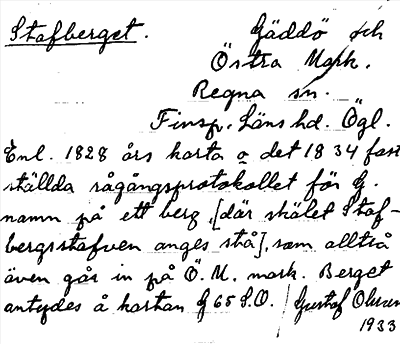 Stafberget. Gäddö och
Östra Mark.
Regna sn.
Finsp. Läns hd. Ögl.
Enl. 1828 års karta o det 1834 fast
ställda rågångsprotokollet för G.
namn på ett berg, [där skälet Staf-
bergsstafven anges stå], som alltså
även går in på Ö. M. mark. Berget
antydes å kartan G 65 S.O. / Gustaf Olsson
1933